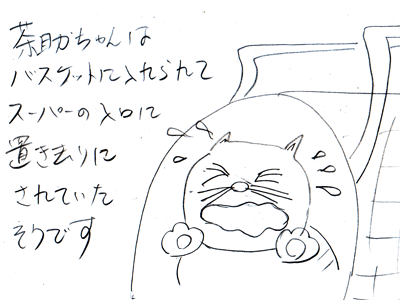 茶助ちゃんは
バスケットに入れられて
スーパーの入口に
置き去りに
されていた
そうです